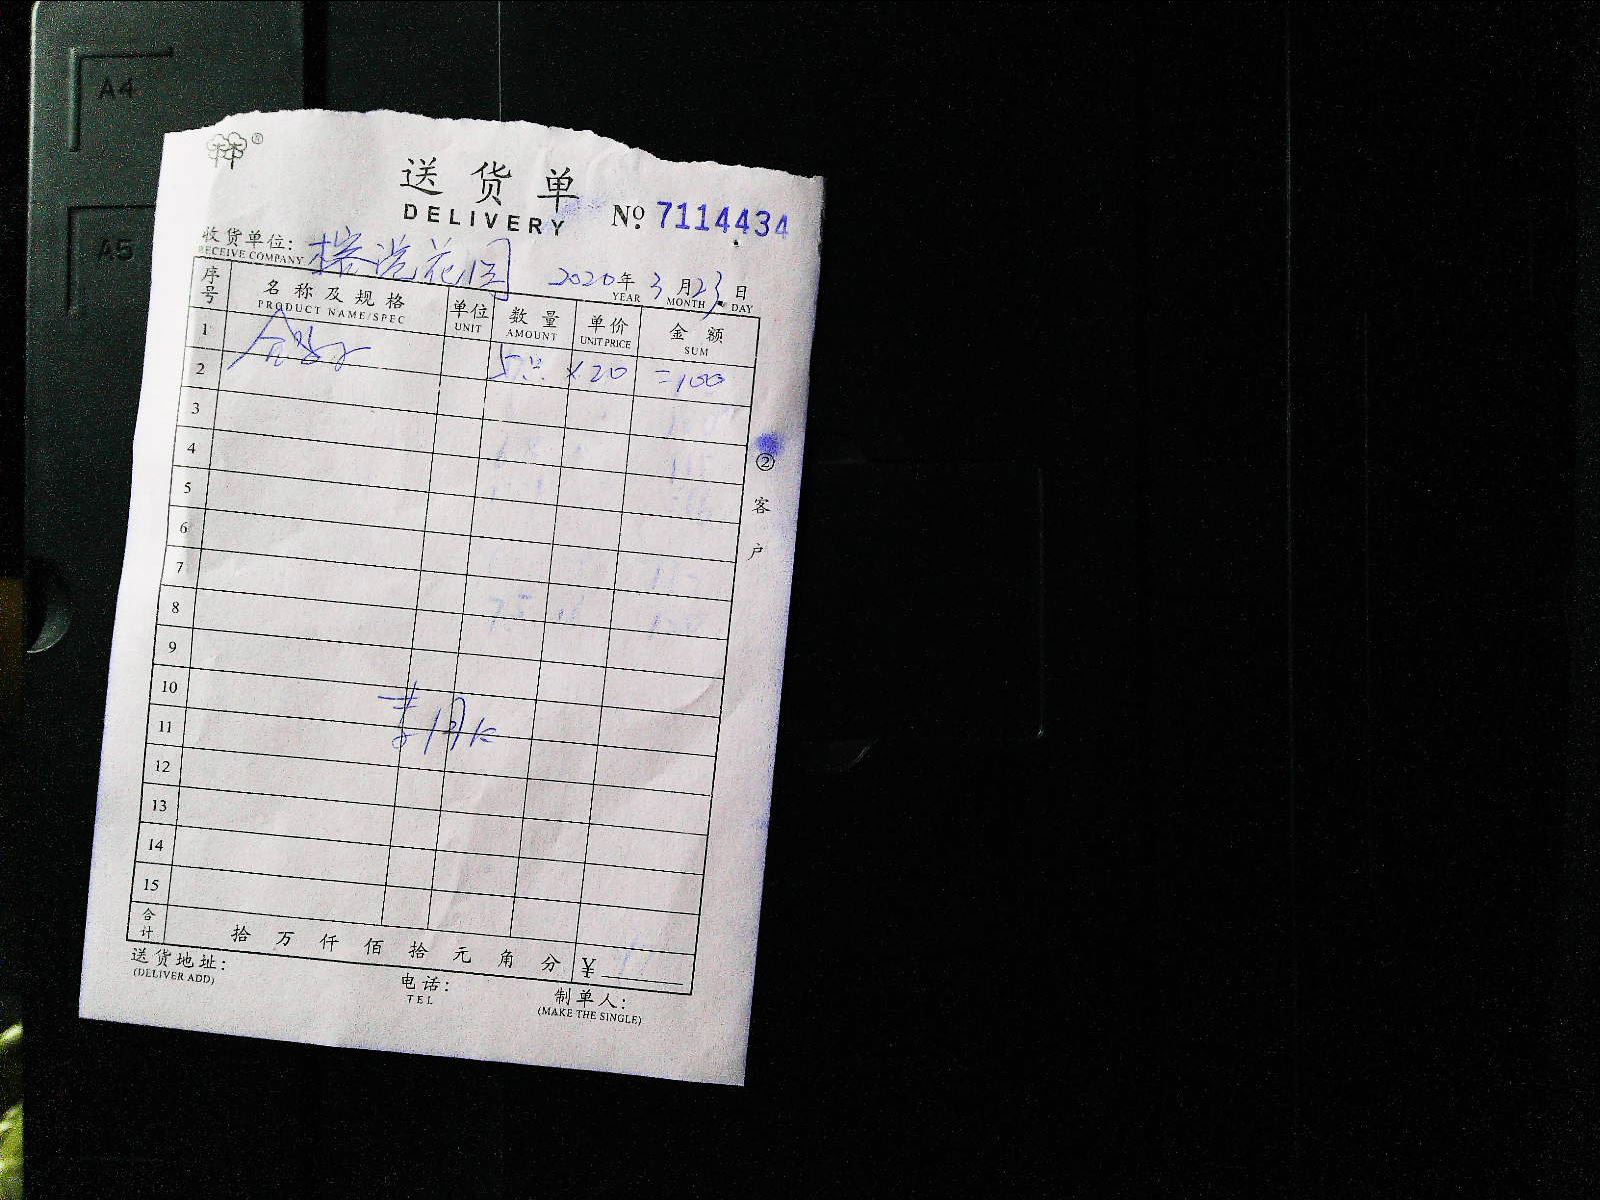 A4
A5
林®
送货单
DELIVERY
№ 7114434
收货单位: 花园
RECEIVE COMPANY
2020年 3月23日
YEAR MONTH DAY
序号 名称及规格 单位 数量 单价 金额
PRODUCT NAME/SPEC UNIT AMOUNT UNIT PRICE SUM
1
2 5 ×20 =100
3
4
5
6
7
8
9
10
11
12
13
14
15
合计 拾 万 仟 佰 拾 元 角 分 ¥
②客户
送货地址: 电话: 制单人:
(DELIVER ADD) TEL (MAKE THE SINGLE)